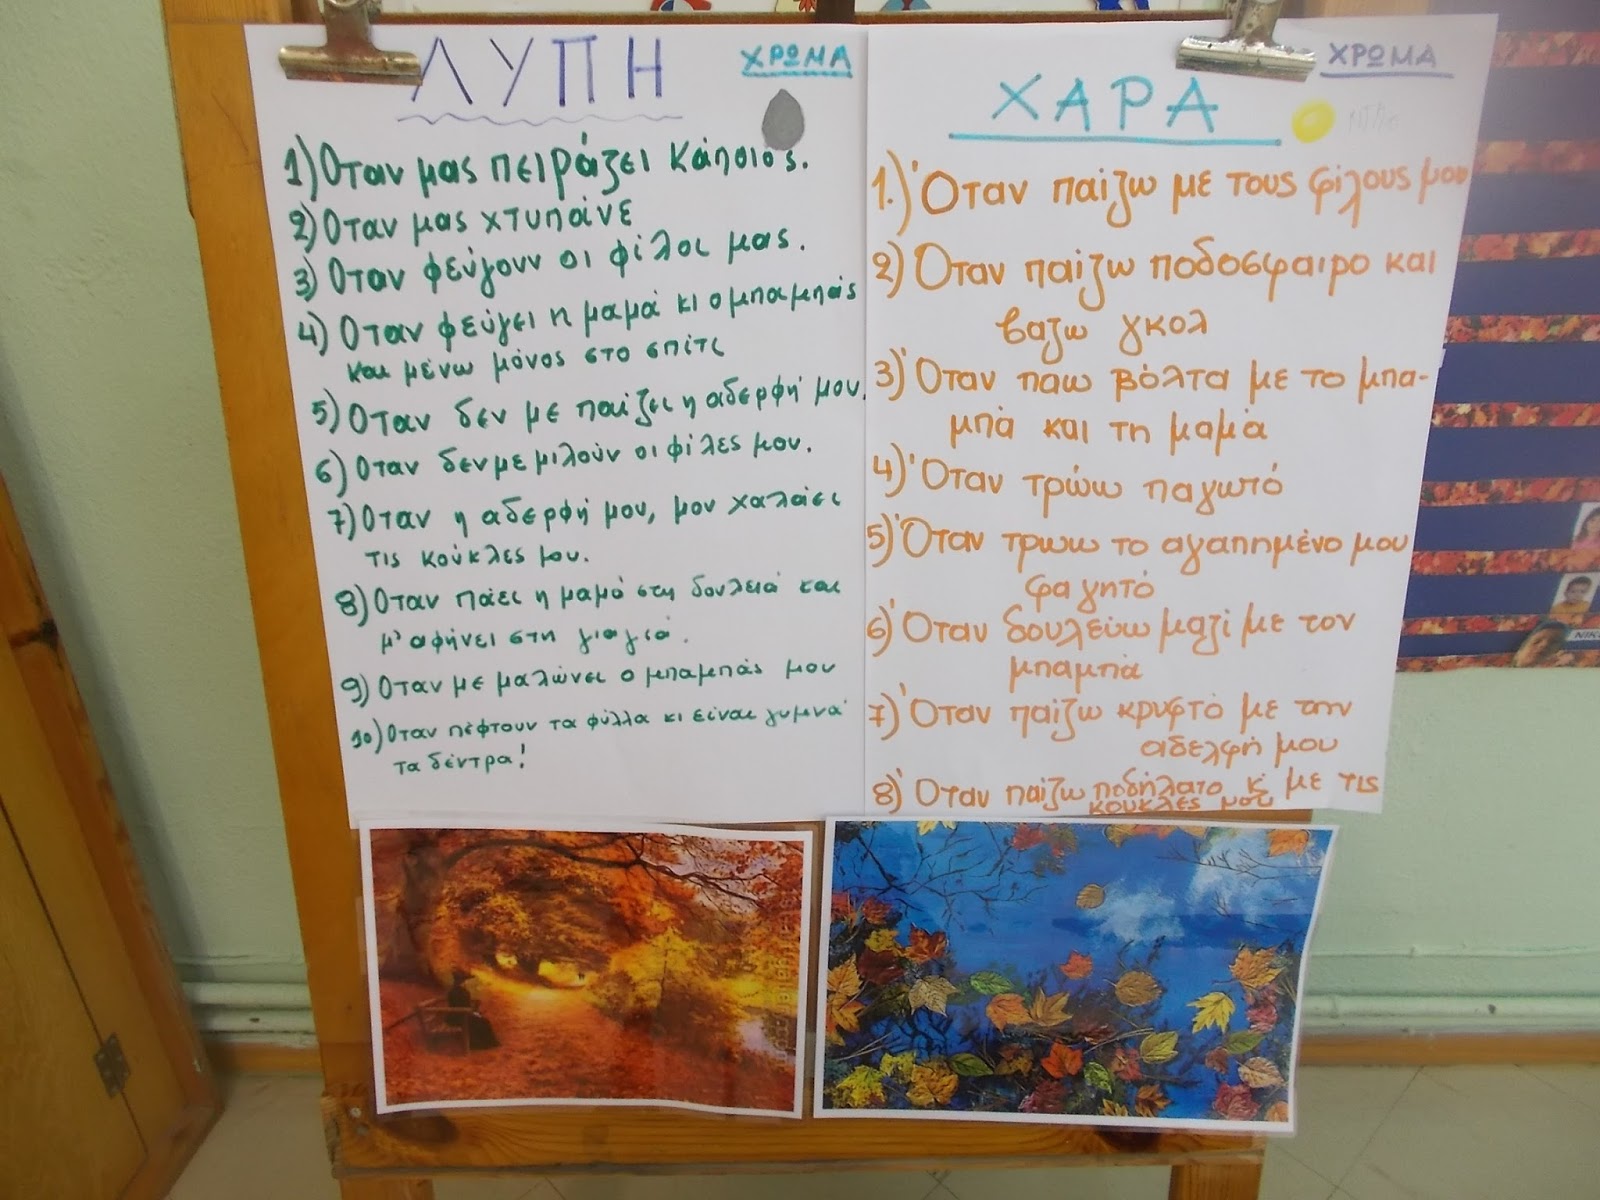 ΛΥΠΗ
ΧΡΩΜΑ
1) Οταν μας πειράζει κάποιος.
2) Οταν μας χτυπάνε
3) Οταν φεύγουν οι φίλοι μας.
4) Οταν φεύγει η μαμά κι ο μπαμπάς
και μένω μόνος στο σπίτι
5) Οταν δεν με παίζει η αδερφή μου.
6) Οταν δεν με μιλούν οι φίλες μου.
7) Οταν η αδερφή μου, μου χαλάει
τις κούκλες μου.
8) Οταν πάει η μαμά στη δουλειά και
μ' αφήνει στη γιαγιά.
9) Οταν με μαλώνει ο μπαμπάς μου
10) Οταν πέφτουν τα φύλλα κι είναι γυμνά
τα δέντρα!
ΧΡΩΜΑ
ΧΑΡΑ
1.) Όταν παίζω με τους φίλους μου
2) Όταν παίζω ποδοσφαιρο και
βαζω γκολ
3) Όταν παω βόλτα με το μπα-
μπά και τη μαμά
4) Όταν τρώω παγωτό
5) Όταν τρωω το αγαπημένο μου
φαγητό
6) Όταν δουλεύω μαζί με τον
μπαμπά
7) Όταν παίζω κρυφτό με την
αδελφή μου
8) Όταν παίζω ποδήλατο κ' με τις
κουκλες μου